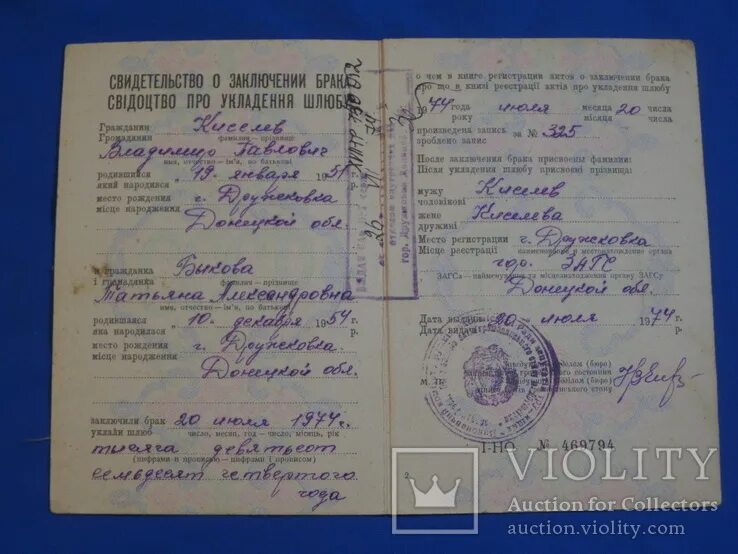 СВИДЕТЕЛЬСТВО О ЗАКЛЮЧЕНИИ БРАКА
СВІДОЦТВО ПРО УКЛАДЕННЯ ШЛЮБУ
Гражданин Киселев
Громадянин фамилия - прізвище
Владимир Павлович
имя, отчество - ім'я, по батькові
родившийся „ 19 „ января 1951 г.
який народився р.
место рождения г. Дружковка
місце народження
Донецкой обл.
и гражданка Быкова
і громадянка фамилия - прізвище
Татьяна Александровна
имя, отчество - ім'я, по батькові
родившаяся „ 10 „ декабря 1954 г.
яка народилася р.
место рождения г. Дружковка
місце народження
Донецкой обл.
заключили брак 20 июля 1974 г.
уклали шлюб число, месяц, год - число, місяць, рік
тысяча девятьсот
(цифрами и прописью - цифрами і прописом)
семьдесят четвертого
года
о чем в книге регистрации актов о заключении брака
про що в книзі реєстрації актів про укладення шлюбу
1974 года июля месяца 20 числа
року місяця числа
произведена запись за № 325
зроблено запис
После заключения брака присвоены фамилии:
Після укладення шлюбу присвоєні прізвища:
мужу Киселев
чоловікові
жене Киселева
дружині
Место регистрации г. Дружковка
Місце реєстрації наименование и местонахождение органа
гор. ЗАГС
ЗАГСа - найменування та місцезнаходження органу ЗАГСу
Донецкой обл.
Дата выдачи „ 20 „ июля 1974 г.
Дата видачі р.
М. П.
I-НО № 469794
2
VIOLITY
Auction for Collectors
auction.violity.com